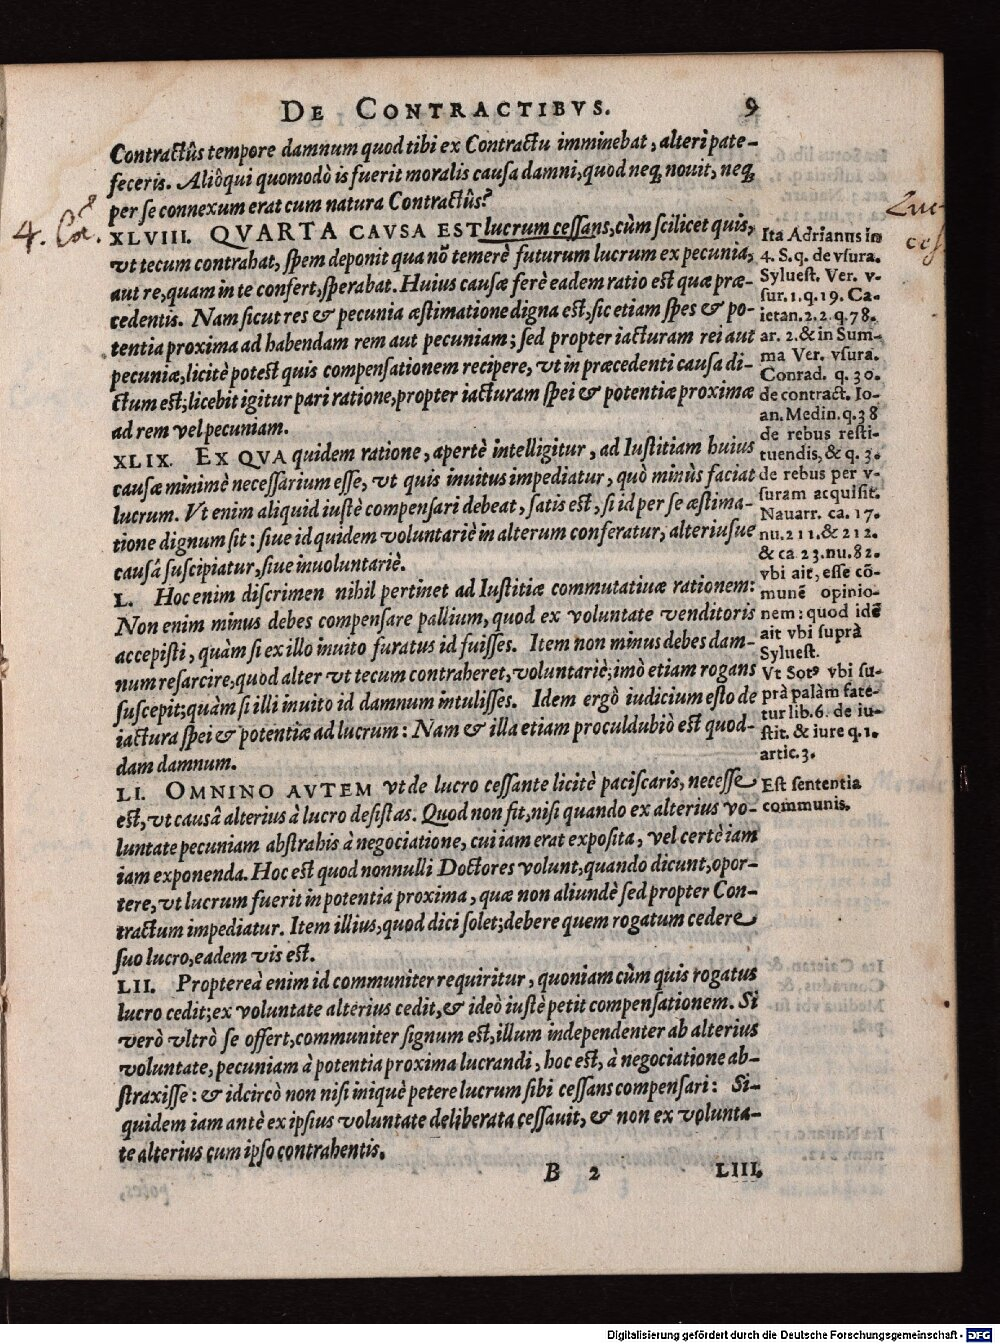 DE CONTRACTIBVS. 9
Contractûs tempore damnum quod tibi ex Contractu imminebat, alteri pate-
feceris. Aliôqui quomodò is fuerit moralis causa damni, quod neq, novit, neq,
per se connexum erat cum natura Contractûs?
4.
XLVIII. QVARTA CAVSA EST lucrum cessans, cùm scilicet quis,
vt tecum contrahat, spem deponit qua nõ temerè futurum lucrum ex pecunia,
aut re, quam in te confert, sperabat. Huius causæ ferè eadem ratio est quæ præ-
cedentis. Nam sicut res & pecunia æstimatione digna est, sic etiam spes & po-
tentia proxima ad habendam rem aut pecuniam; sed propter iacturam rei aut
pecuniæ, licitè potest quis compensationem recipere, vt in præcedenti causa di-
ctum est; licebit igitur pari ratione, propter iacturam spei & potentiæ proximæ
ad rem vel pecuniam.
XLIX. EX QVA quidem ratione, apertè intelligitur, ad Iustitiam huius
causæ minimè necessarium esse, vt quis inuitus impediatur, quò minùs faciat
lucrum. Vt enim aliquid iustè compensari debeat, satis est, si id per se æstima-
tione dignum sit: siue id quidem voluntariè in alterum conferatur, alteriusue
causâ suscipiatur, siue inuoluntariè.
L. Hoc enim discrimen nihil pertinet ad Iustitiæ commutatiuæ rationem:
Non enim minus debes compensare pallium, quod ex voluntate venditoris
accepisti, quàm si ex illo inuito furatus id fuisses. Item non minus debes dam-
num resarcire, quod alter vt tecum contraheret, voluntariè; imò etiam rogans
suscepit; quàm si illi inuito id damnum intulisses. Idem ergò iudicium esto de
iactura spei & potentiæ ad lucrum: Nam & illa etiam proculdubiò est quod-
dam damnum.
LI. OMNINO AVTEM vt de lucro cessante licitè paciscaris, necesse
est, vt causâ alterius à lucro desistas. Quod non fit, nisi quando ex alterius vo-
luntate pecuniam abstrahis à negociatione, cui iam erat exposita, vel certè iam
iam exponenda. Hoc est quod nonnulli Doctores volunt, quando dicunt, opor-
tere, vt lucrum fuerit in potentia proxima, quæ non aliundè sed propter Con-
tractum impediatur. Item illius, quod dici solet; debere quem rogatum cedere
suo lucro, eadem vis est.
LII. Propterea enim id communiter requiritur, quoniam cùm quis rogatus
lucro cedit; ex voluntate alterius cedit, & ideò iustè petit compensationem. Si
verò vltrò se offert, communiter signum est, illum independenter ab alterius
voluntate, pecuniam à potentia proxima lucrandi, hoc est, à negociatione ab-
straxisse: & idcircò non nisi iniquè petere lucrum sibi cessans compensari: Si-
quidem iam antè ex ipsius voluntate deliberata cessauit, & non ex volunta-
te alterius cum ipso contrahentis.
B 2 LIII.
Ita Adrianus in
4. S. q. de vsura.
Syluest. Ver. v-
sur. 1. q. 19. Ca-
ietan. 2. 2. q. 78.
ar. 2. & in Sum-
ma Ver. vsura.
Conrad. q. 30.
de contract. Io-
an. Medin. q. 38
de rebus resti-
tuendis, & q. 3.
de rebus per v-
suram acquisit.
Nauarr. ca. 17.
nu. 211. & 212.
& ca 23. nu. 82.
vbi ait, esse cō-
munē opinio-
nem: quod idē
ait vbi suprà
Syluest.
Vt Sotꝰ vbi su-
prà palàm fate-
tur lib. 6. de iu-
stit. & iure q. 1.
artic. 3.
Est sententia
communis.
Digitalisierung gefördert durch die Deutsche Forschungsgemeinschaft - DFG